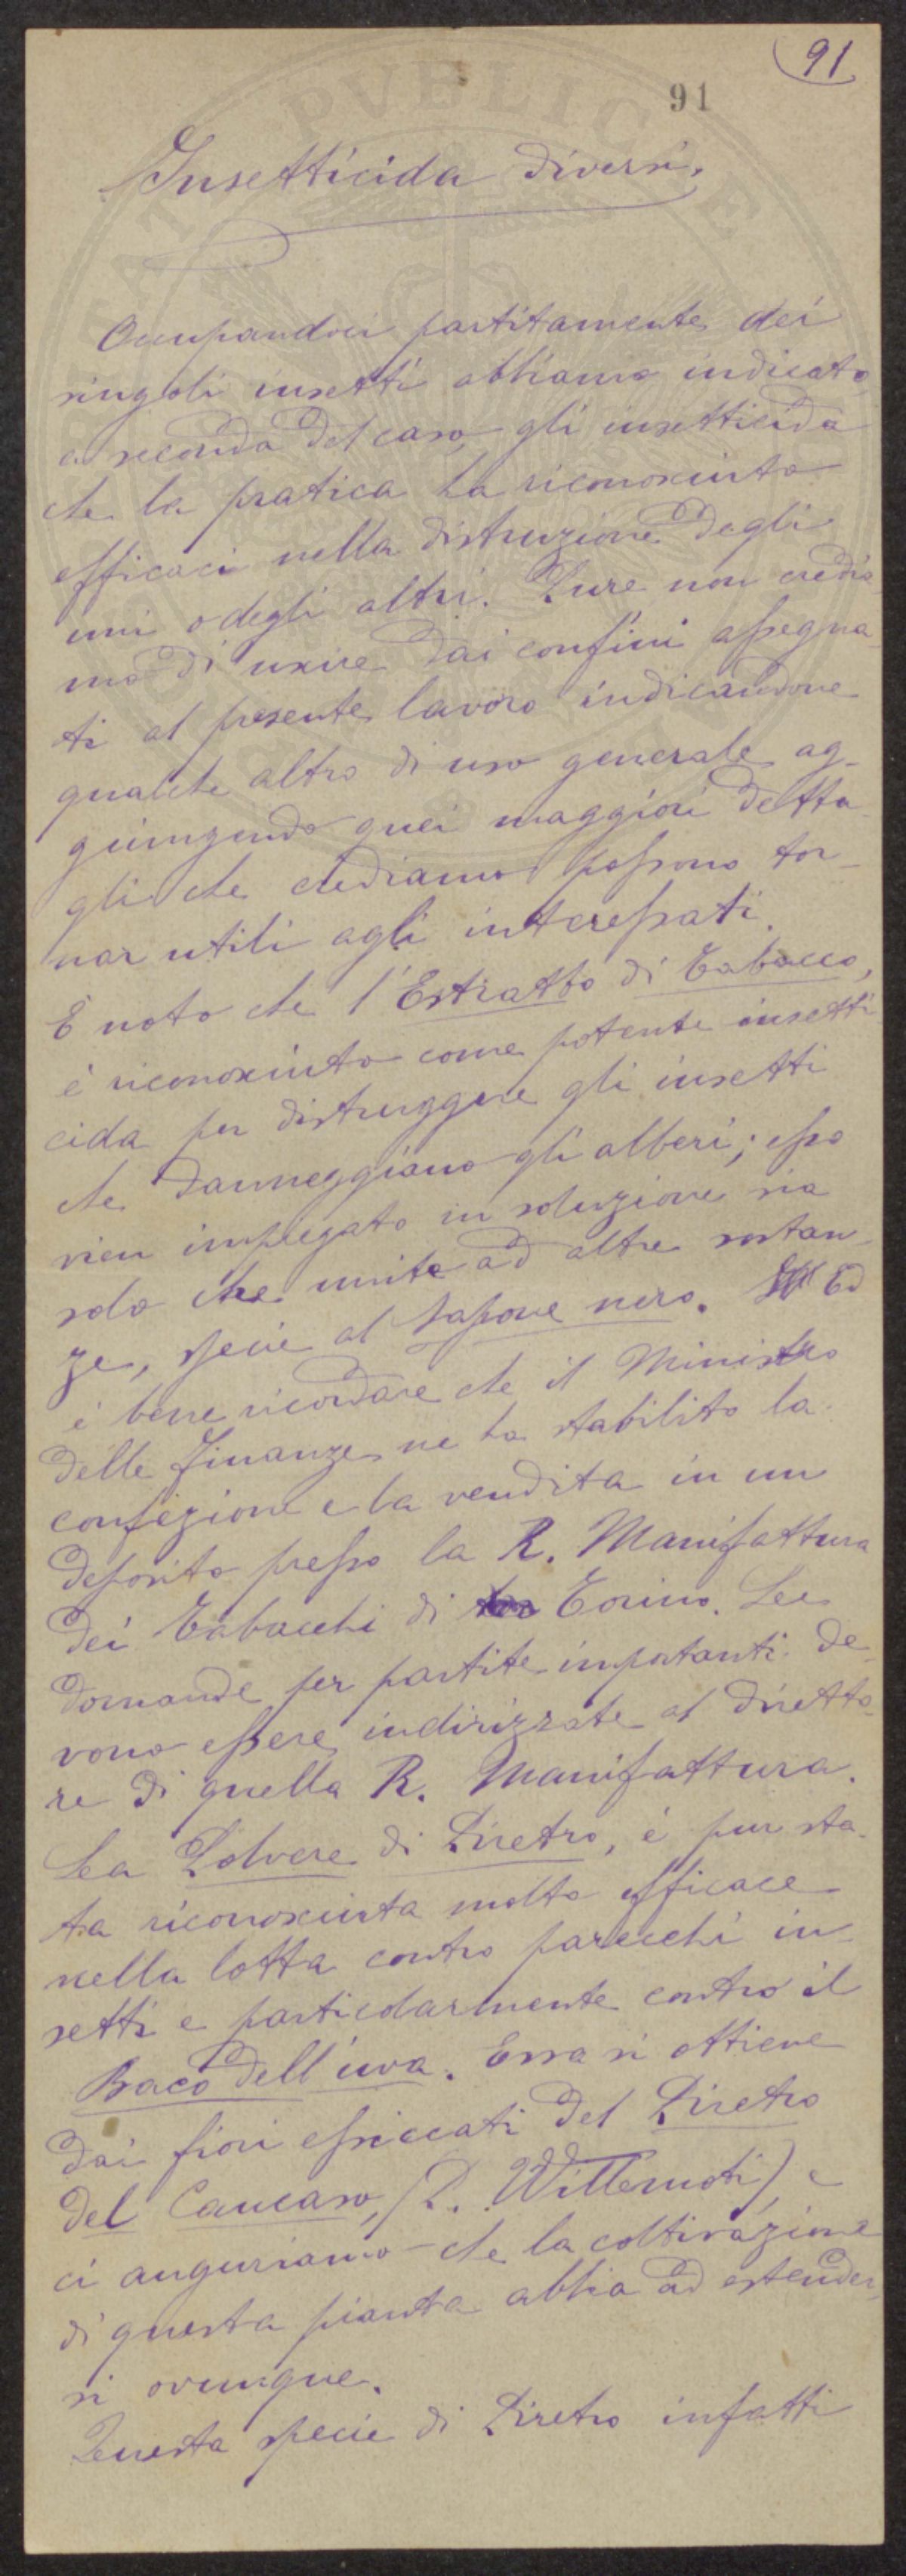 91
91
Insetticida diversi.
Occupandoci partitamente dei
singoli insetti abbiamo indicato,
a seconda del caso, gli insetticida
che la pratica ha riconosciuto
efficaci nella distruzione degli
uni o degli altri. Pure non credia
mo di uscire dai confini assegna
ti al presente lavoro indicandone
qualche altro di uso generale ag-
giungendo quei maggiori detta
gli che crediamo possono tor-
nar utili agli interessati.
È noto che l'Estratto di Tabacco,
è riconosciuto come potente insetti
cida per distruggere gli insetti
che danneggiano gli alberi; esso
vien impiegato in soluzione sia
solo che unito ad altre sostan-
ze, specie al sapone nero. Ed
è bene ricordare che il Ministro
delle Finanze ne ha stabilito la
confezione e la vendita in un
deposito presso la R. Manifattura
dei Tabacchi di Torino. Le
domande per partite inportanti de-
vono essere indirizzate al diretto-
re di quella R. Manifattura.
La Polvere di Piretro, è pur sta-
ta riconosciuta molto efficace
nella lotta contro parecchi in-
setti e particolarmente contro il
Baco dell'uva. Essa si ottiene
dai fiori essiccati del Piretro
del Caucaso, (P. Willemoti), e
ci auguriamo che la coltivazione
di questa pianta abbia ad estender-
si ovunque.
Questa specie di Piretro infatti